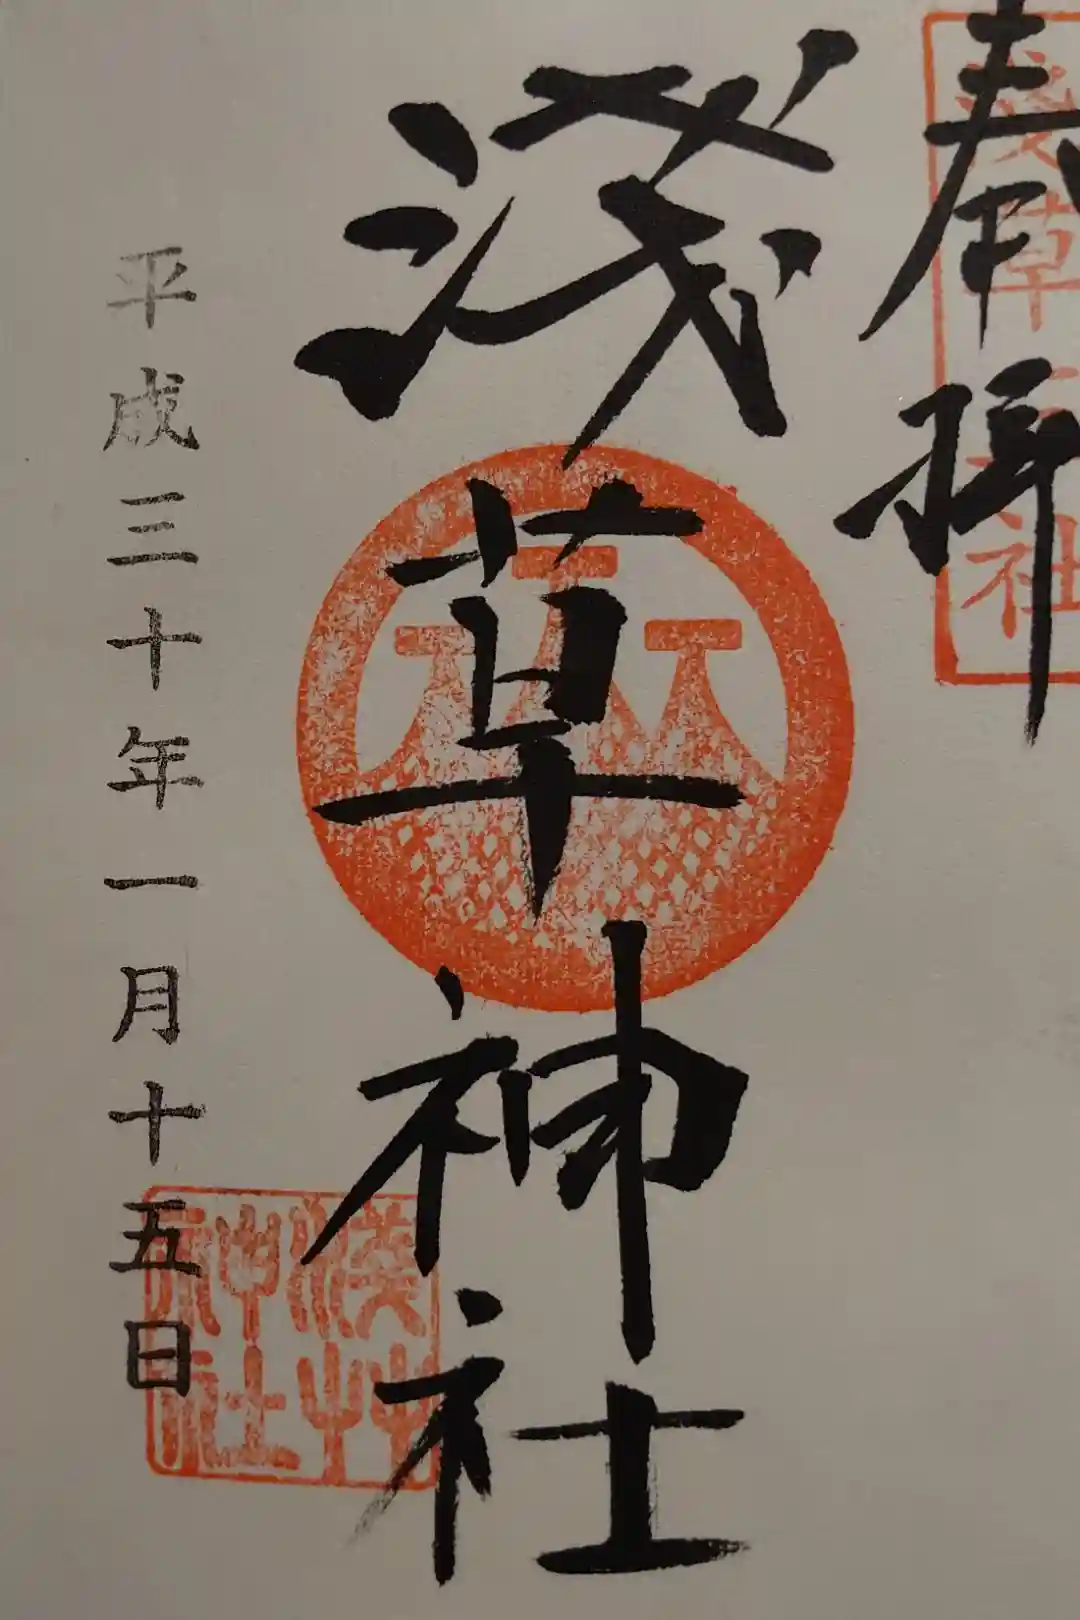 奉拝
浅草名所七福神
浅草神社
平成三十年一月十五日
浅草神社